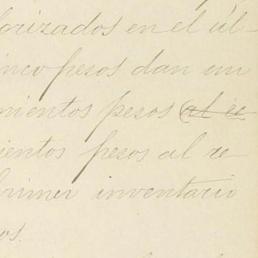 lorizados en el úl-
inco pesos dan un
mientos pesos
ientos pesos al re
primer inventario
os.